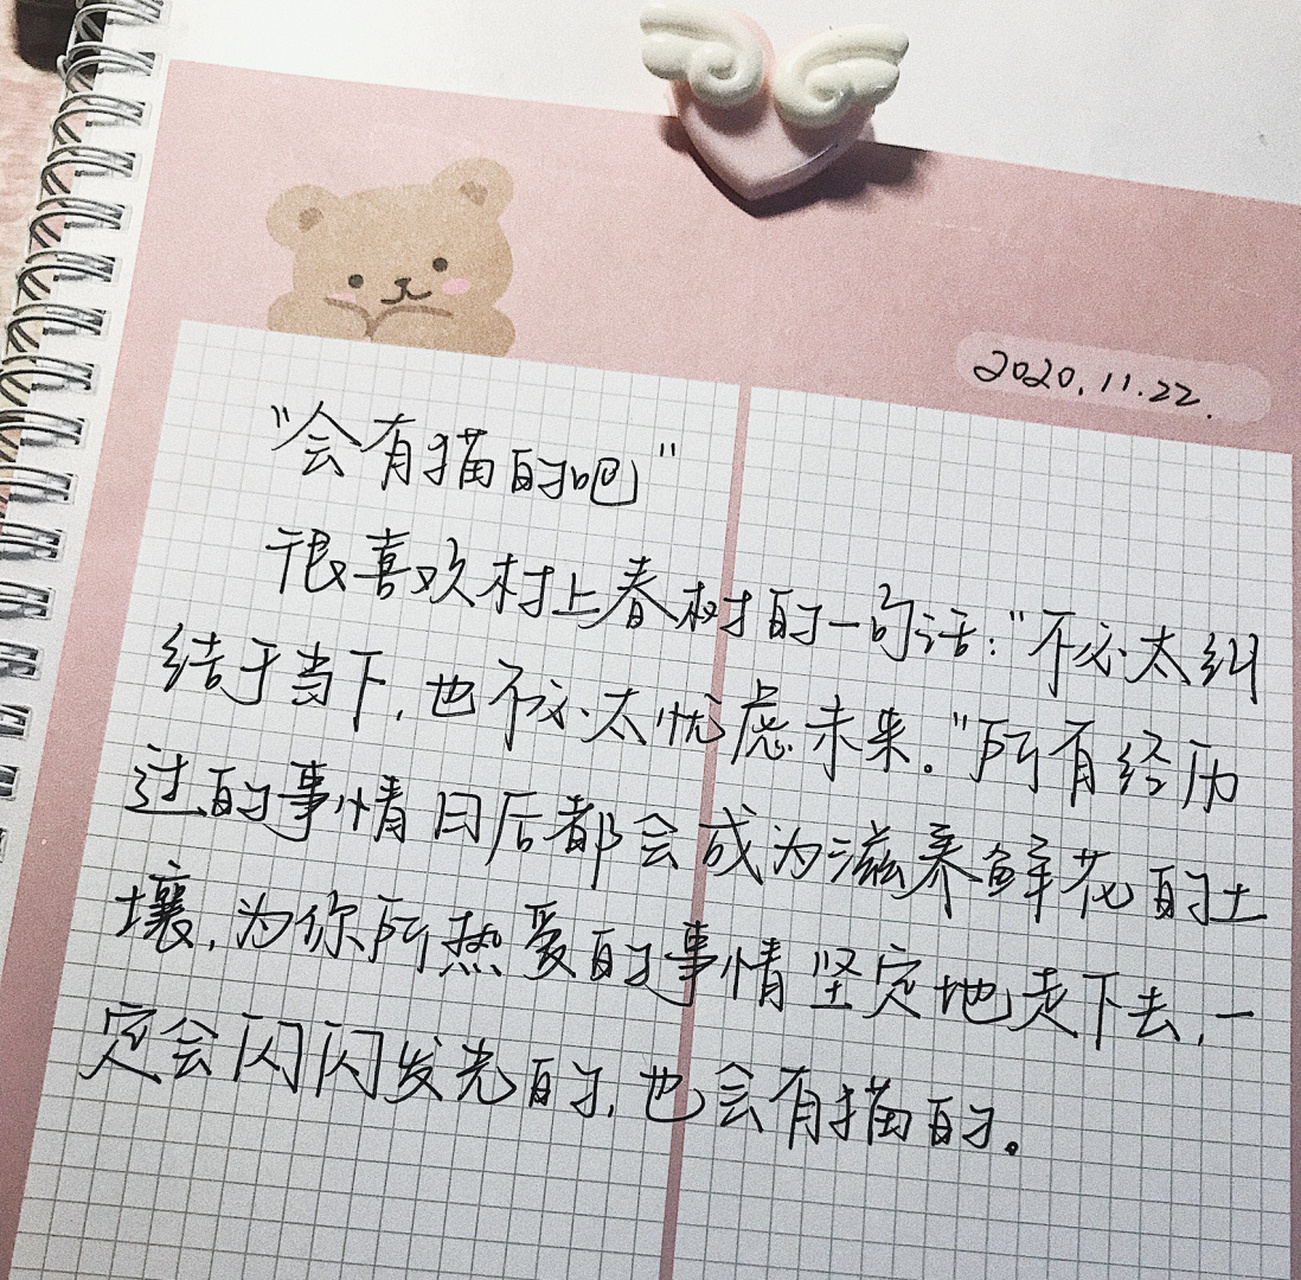 2020.11.22.
"会有猫的吧"
很喜欢村上春树的一句话:"不必太纠
结于当下,也不必太忧虑未来。"所有经历
过的事情日后都会成为滋养鲜花的土
壤,为你所热爱的事情坚定地走下去,一
定会闪闪发光的,也会有猫的。